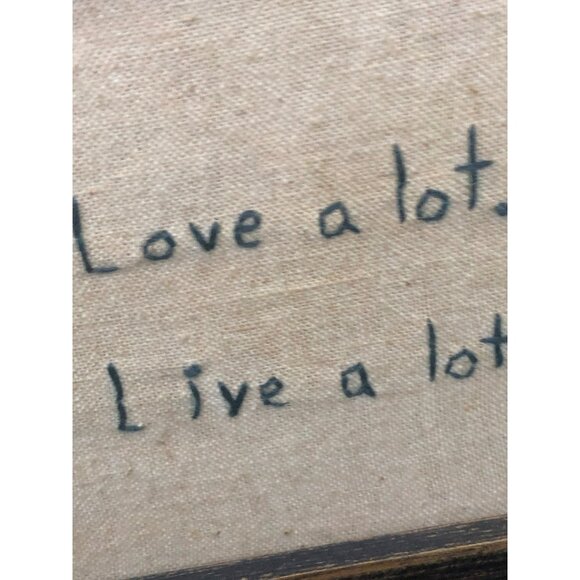 Love a lot.
Live a lot